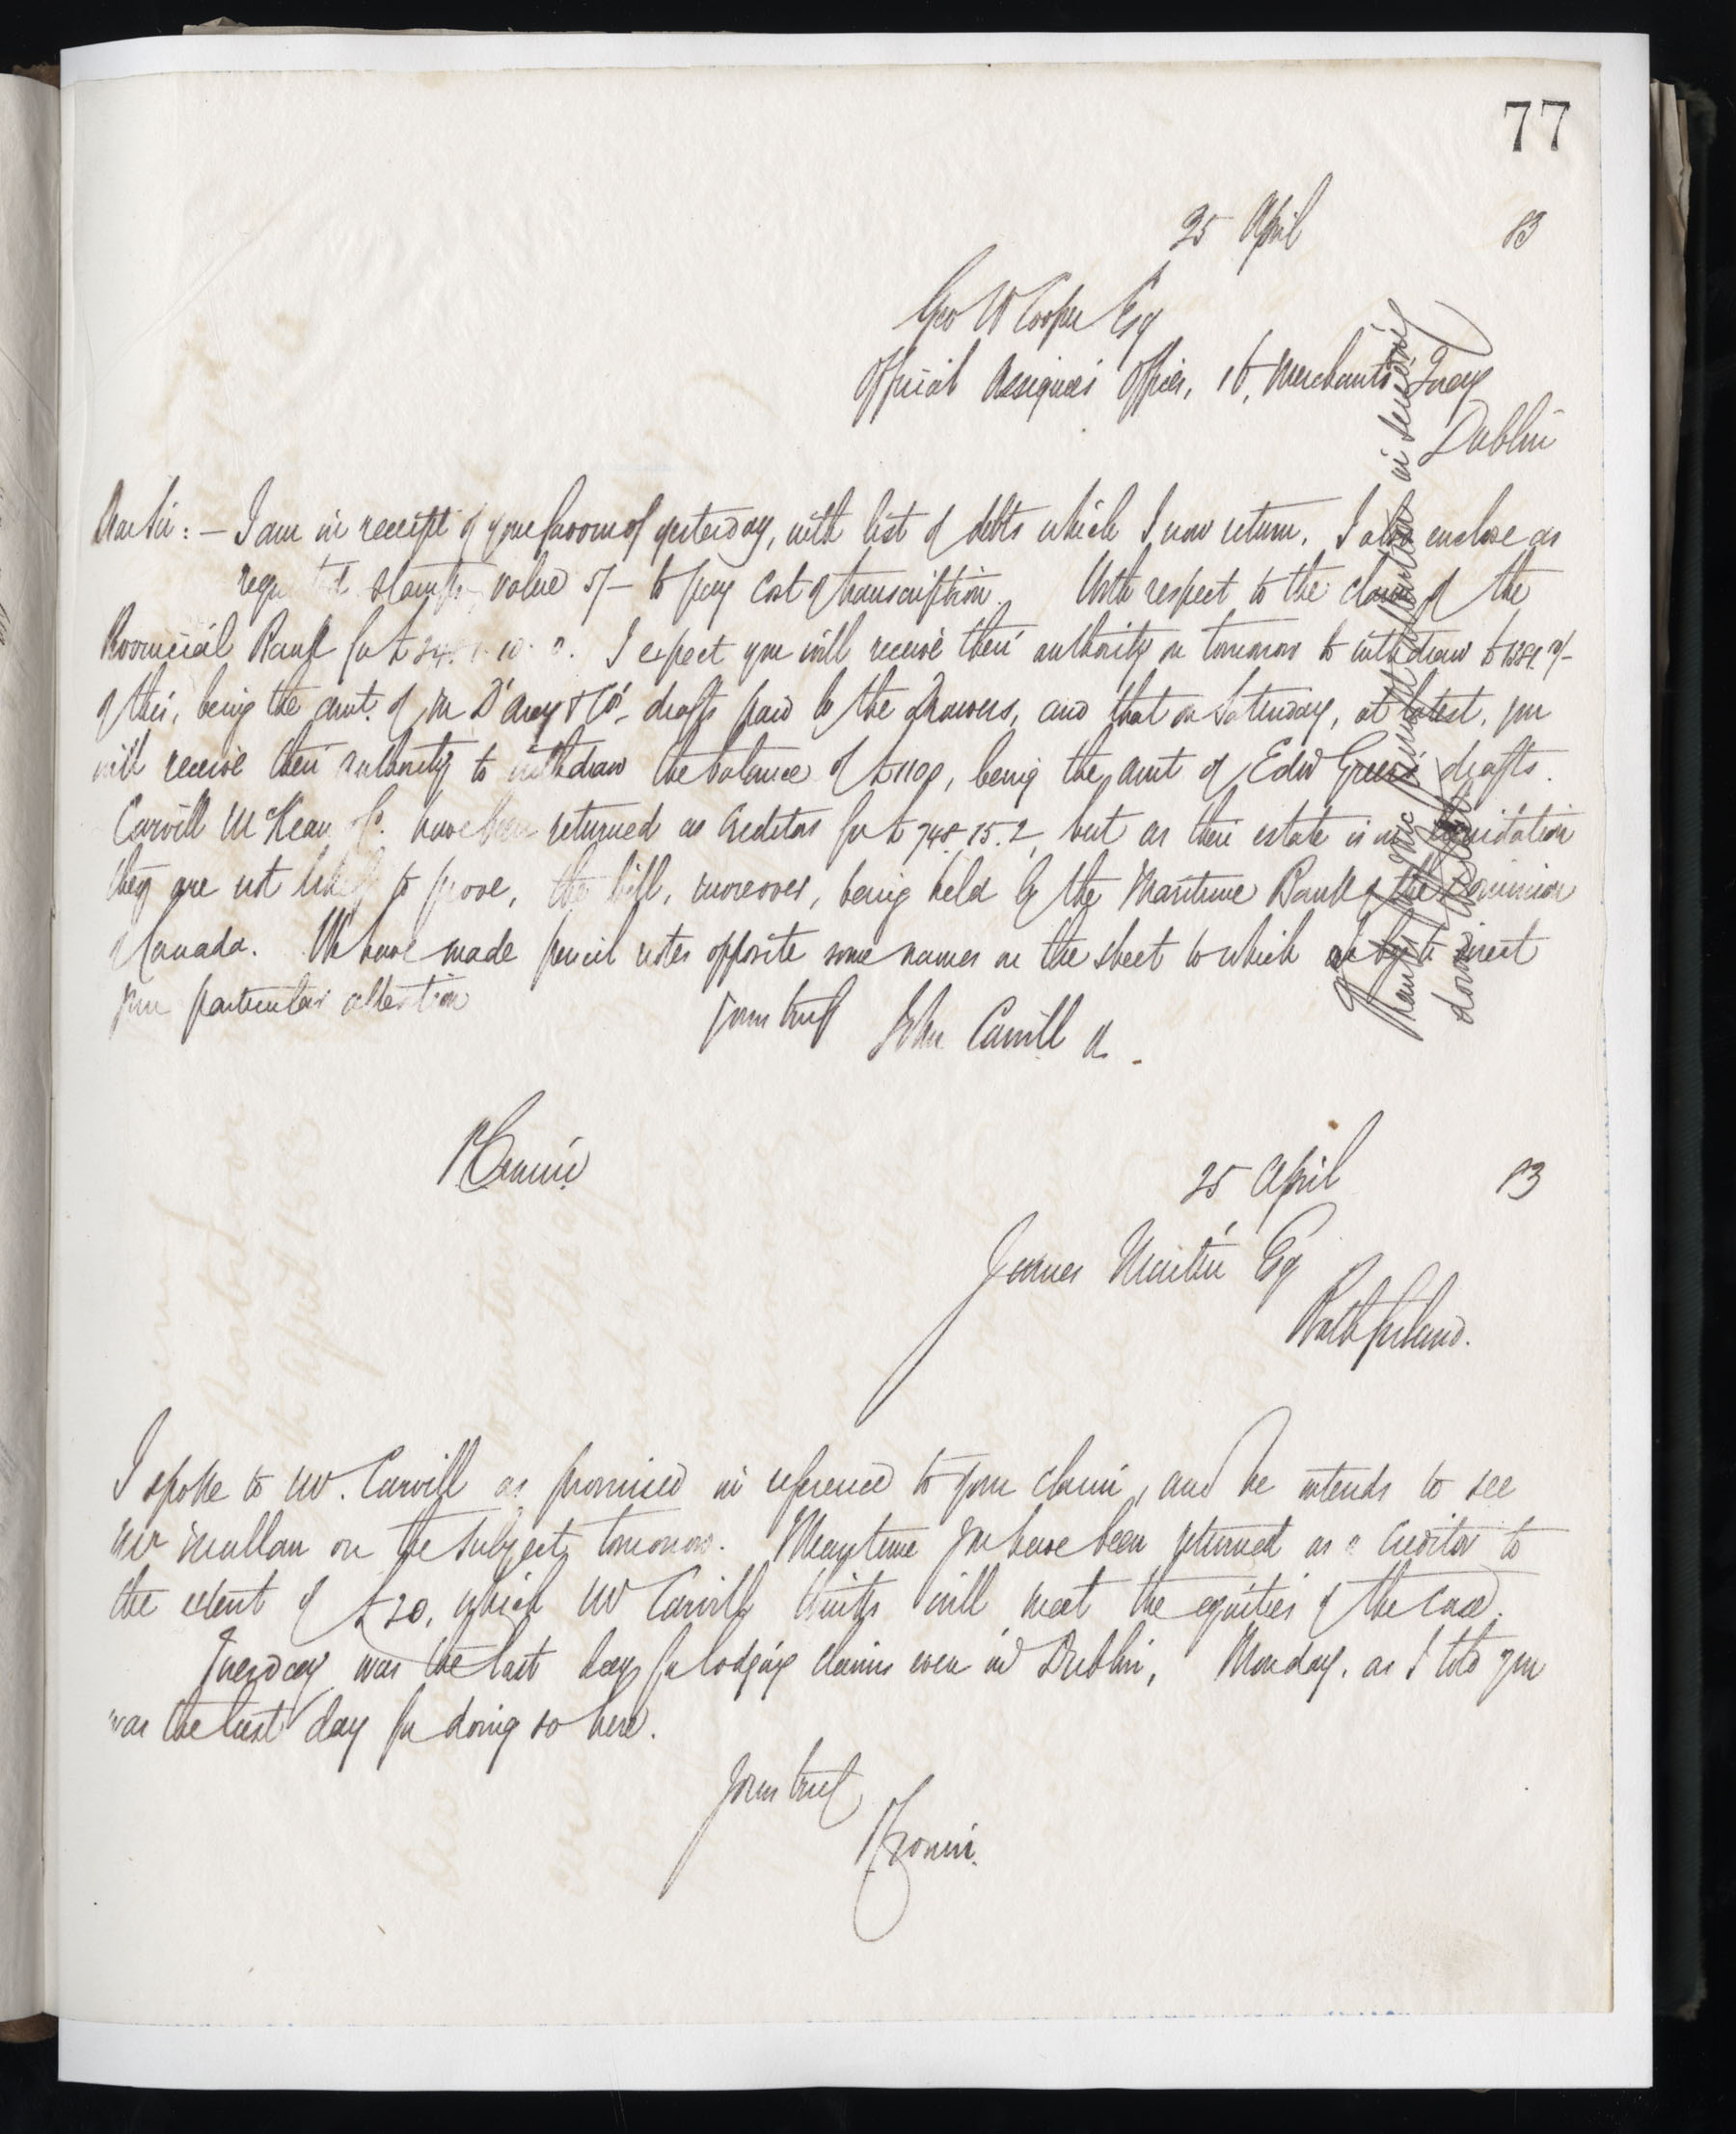 77
25 April 83
Geo W Cooper Esq
Official Assignees Offices, 16, Merchants Quay
Dublin
Dear Sir : — I am in receipt of your favour of yesterday, with list of debts which I now return. I also enclose as
stamps value 5/- to pay cost of transcription. With respect to the claim of the
Provincial Bank for £ I expect you will receive their authority on tomorrow to withdraw
of this, being the amt. of M D'Arcy & Co's drafts paid by the Drawers, and that on Saturday, at latest, you
will receive their authority to withdraw the balance of £1100, being the amt of Edw Green's drafts.
Carvill McKean & Co. have been returned as creditors for £748.15.2, but as their estate is in liquidation
they are not likely to prove, the bill, moreover, being held by the Maritime Bank of the Dominion
of Canada. We have made pencil notes opposite some names on the sheet to which we beg to direct
your particular attention
Yours truly John Carvill
Thanks for in sending
down
P Cronin
25 April 83
James Martin Esq
Rathfriland.
I spoke to Mr. Carvill as promised in reference to your claim, and he intends to see
Mr Mullan on the subject tomorrow. Meantime you have been returned as a creditor to
the extent of £20, which Mr Carvill thinks will meet the equities of the case.
Tuesday was the last day for lodging claims even in Dublin, Monday, as I told you
was the last day for doing so here.
Yours truly
P Cronin.